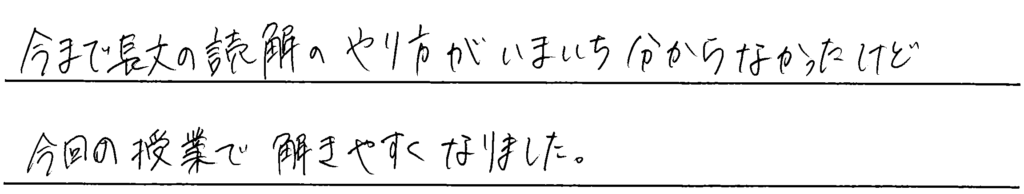 今まで長文の読解のやり方がいまいち分からなかったけど
今回の授業で解きやすくなりました。